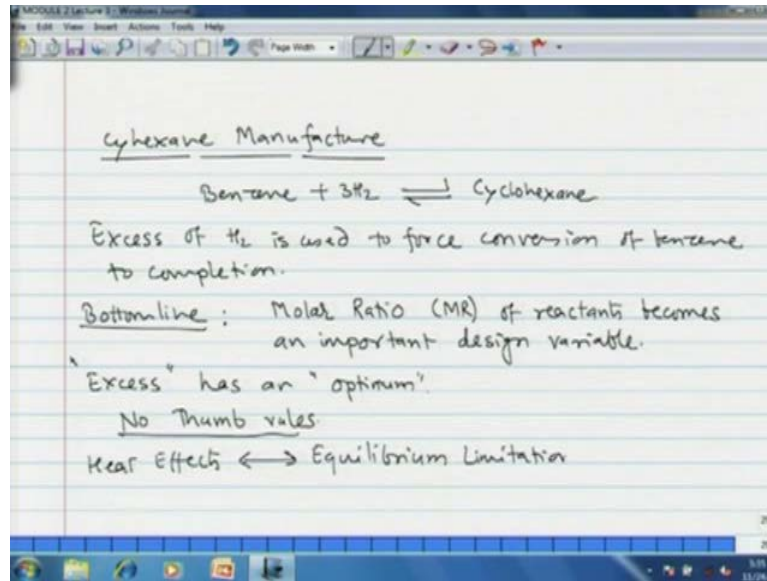 MODULE 2 Lecture 3 - Windows Journal
File Edit View Insert Actions Tools Help
Page Width
Cyhexane Manufacture
Benzene + 3H2 ⇌ Cyclohexane
Excess of H2 is used to force conversion of benzene
to completion.
Bottomline : Molar Ratio (MR) of reactants becomes
an important design variable.
"Excess" has an "optimum".
No Thumb rules.
Heat Effects ⟷ Equilibrium Limitation